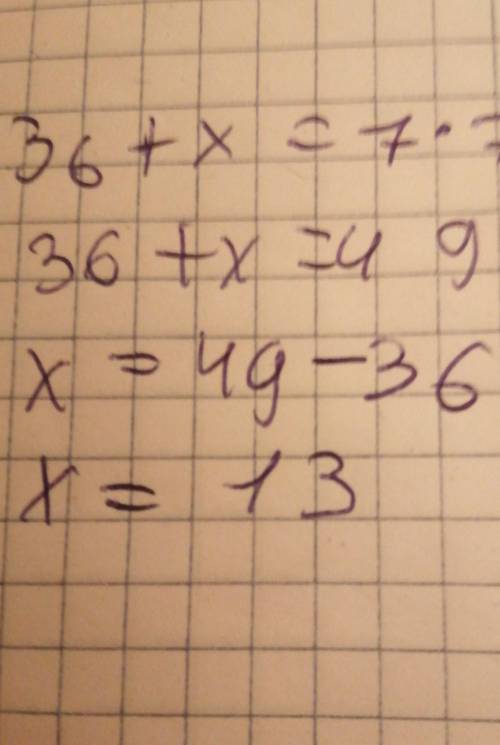 36 + x = 7 · 7
36 + x = 49
x = 49 - 36
x = 13